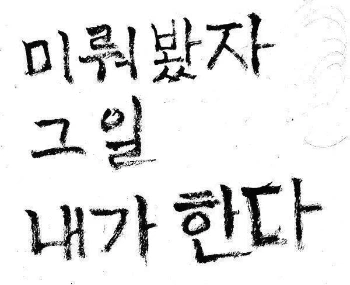 미뤄봤자
그 일
내가 한다